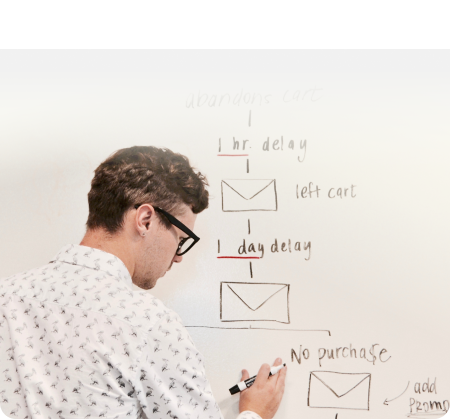 abandone cart
1 hr. delay
left cart
1 day delay
No purcha$e
add
Promo